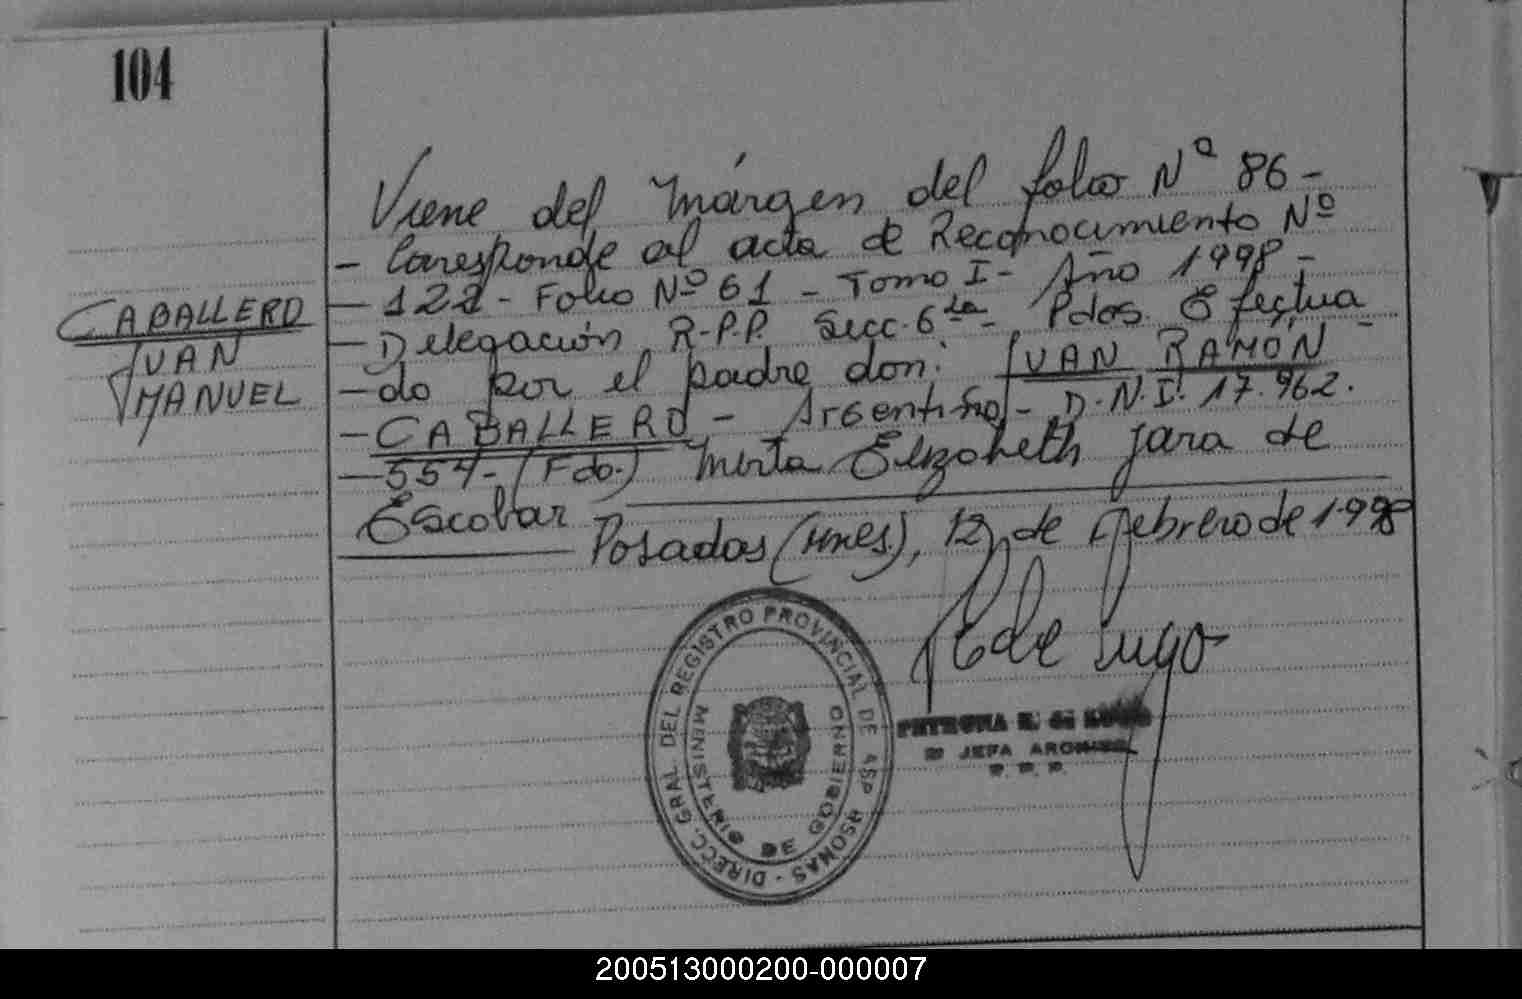 104
Viene del márgen del folio Nº 86 -
- Coresponde al acta de Reconocimiento Nº
- 122 - Folio Nº 61 - Tomo I - Año 1998 -
- Delegación R.P.P. Secc. 6ta - Pdas. Efectua
- do por el padre don: JUAN RAMÓN -
- CABALLERO - Argentino - D.N.I. 17.962.
- 554 - (Fdo.) Mirta Elizabeth Jara de
Escobar
Posadas (Mnes.), 12 de Febrero de 1.998
CABALLERO
JUAN
MANUEL
DIRECC. GRAL. DEL REGISTRO PROVINCIAL DE LAS PERSONAS
MINISTERIO DE GOBIERNO
PETRONA E. de LUGO
JEFA ARCHIVO
R. P. P.
200513000200-000007